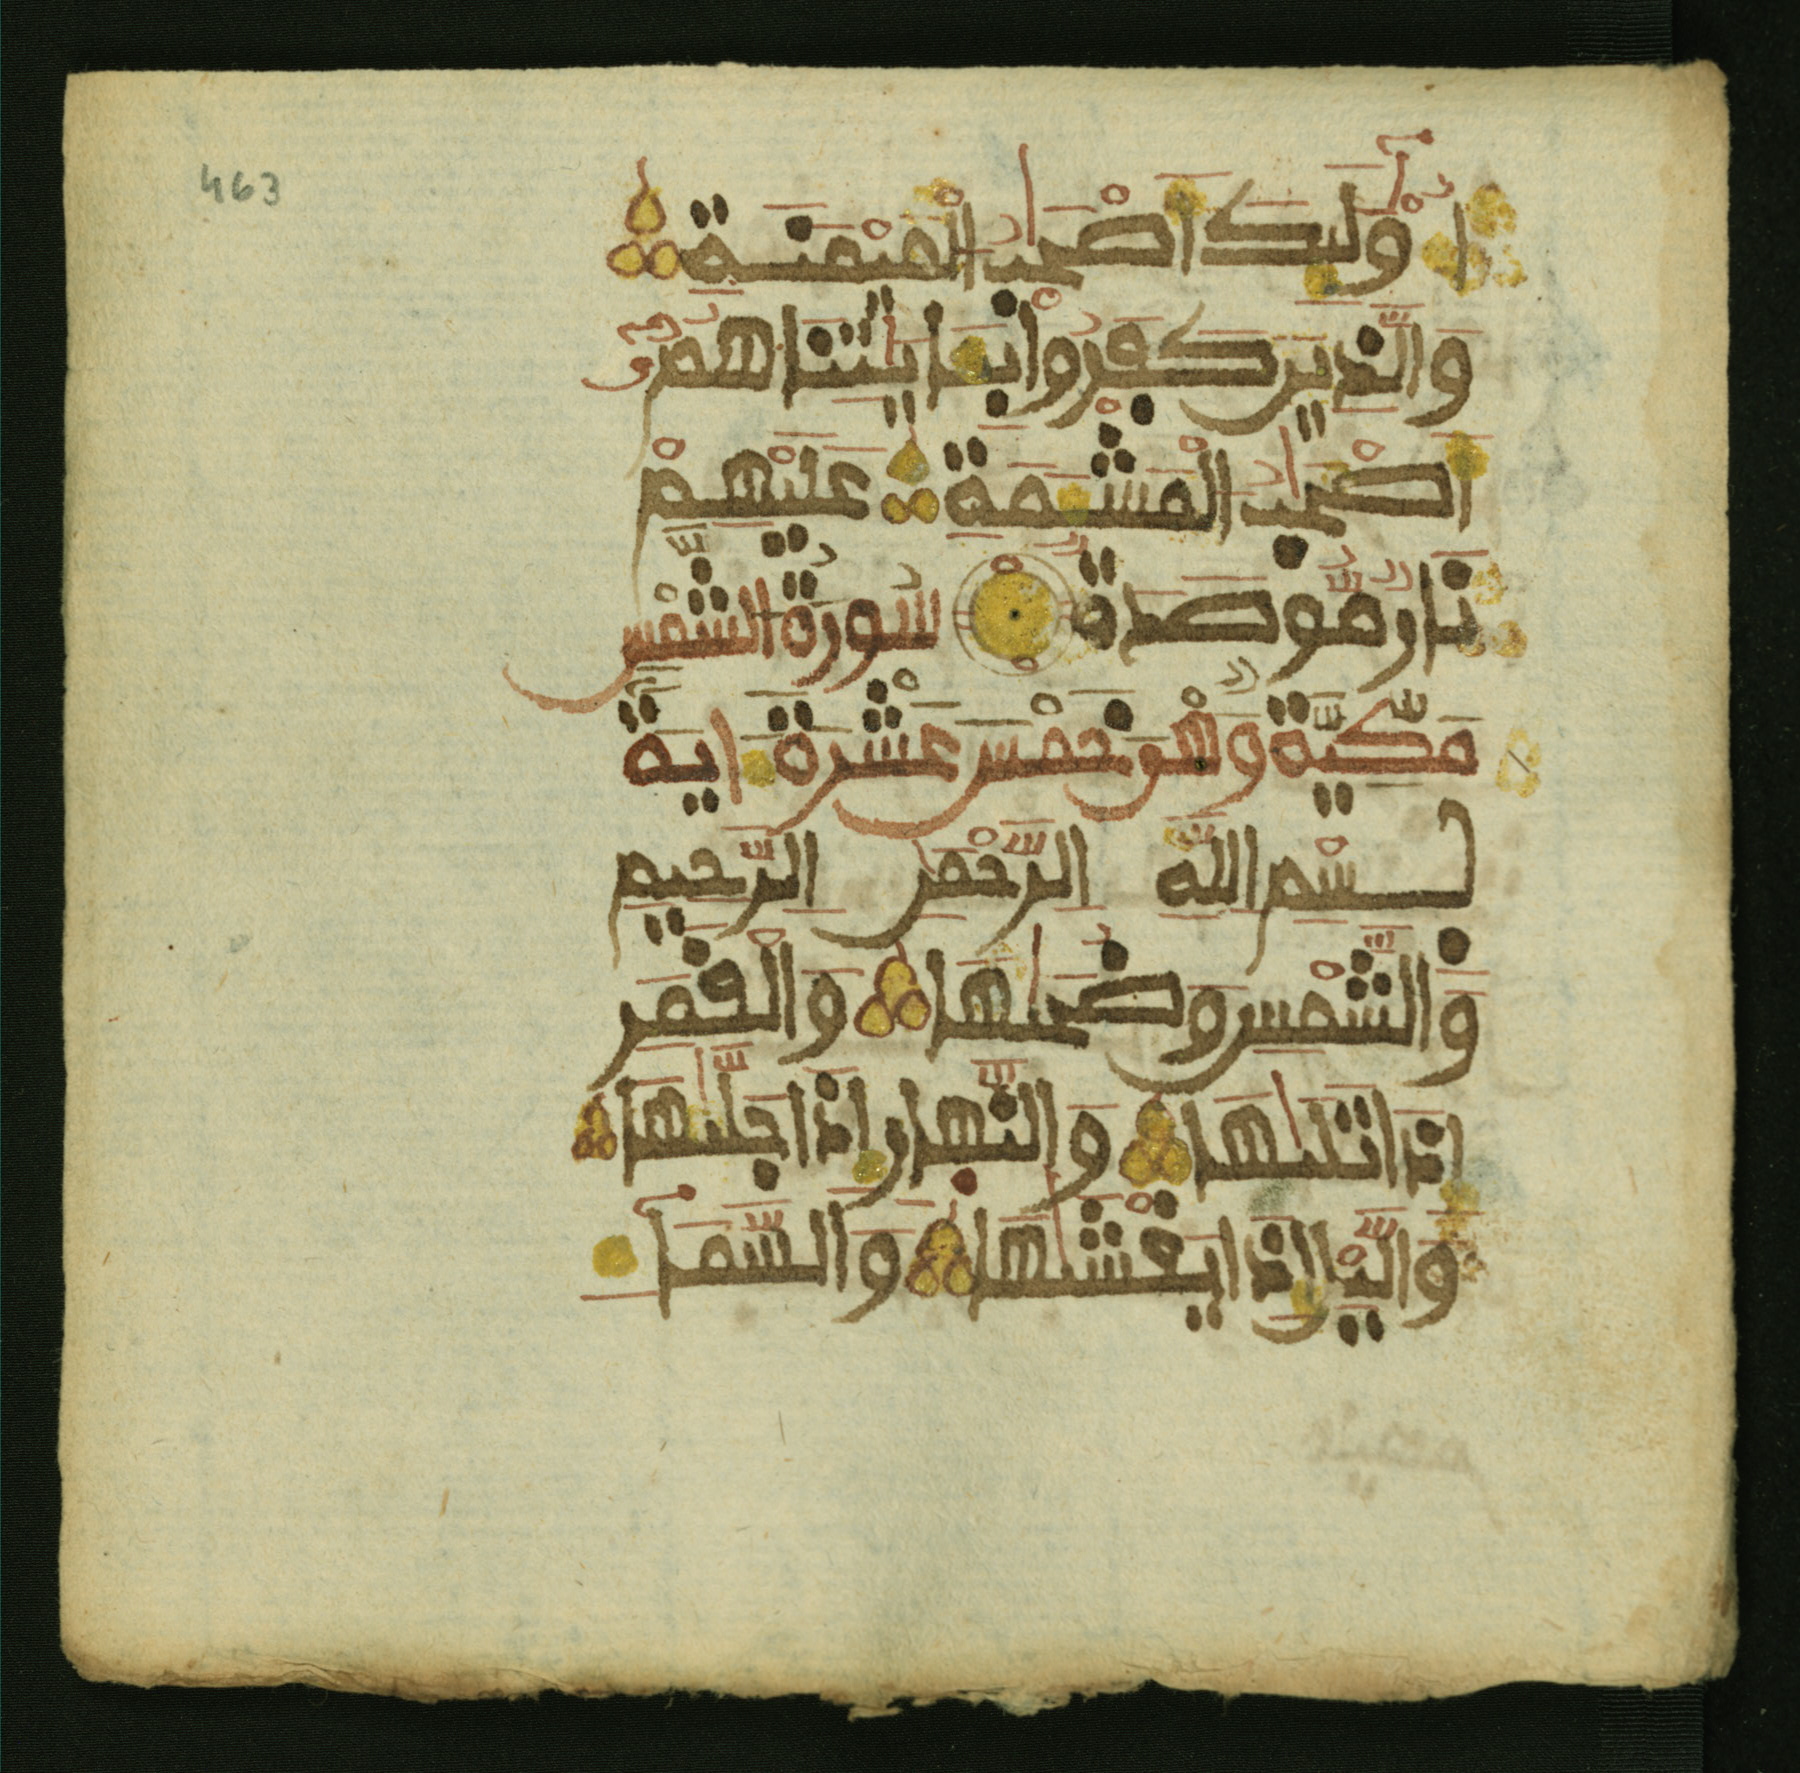 463
اولئك اصحب الميمنة
والذين كفروا بايتنا هم
اصحب المشمة عليهم
نار موصدة سورة الشمس
مكية وهو خمس عشرة اية
بسم الله الرحمن الرحيم
والشمس وضحيها والقمر
اذا تليها والنهار اذا جليها
واليل اذا يغشيها والسما